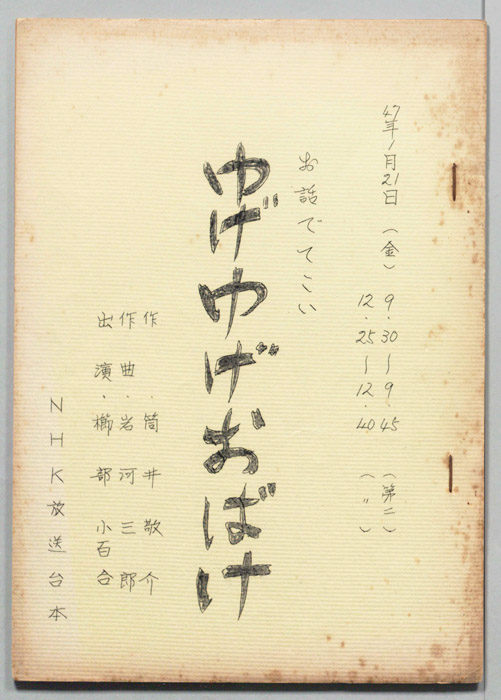 47年1月21日(金) 9.30〜9.45(第二)
12.25〜12.40(〃)
お話でてこい
ゆげゆげおばけ
作.筒井敬介
作曲.岩河三郎
出演.櫛部小百合
NHK放送台本